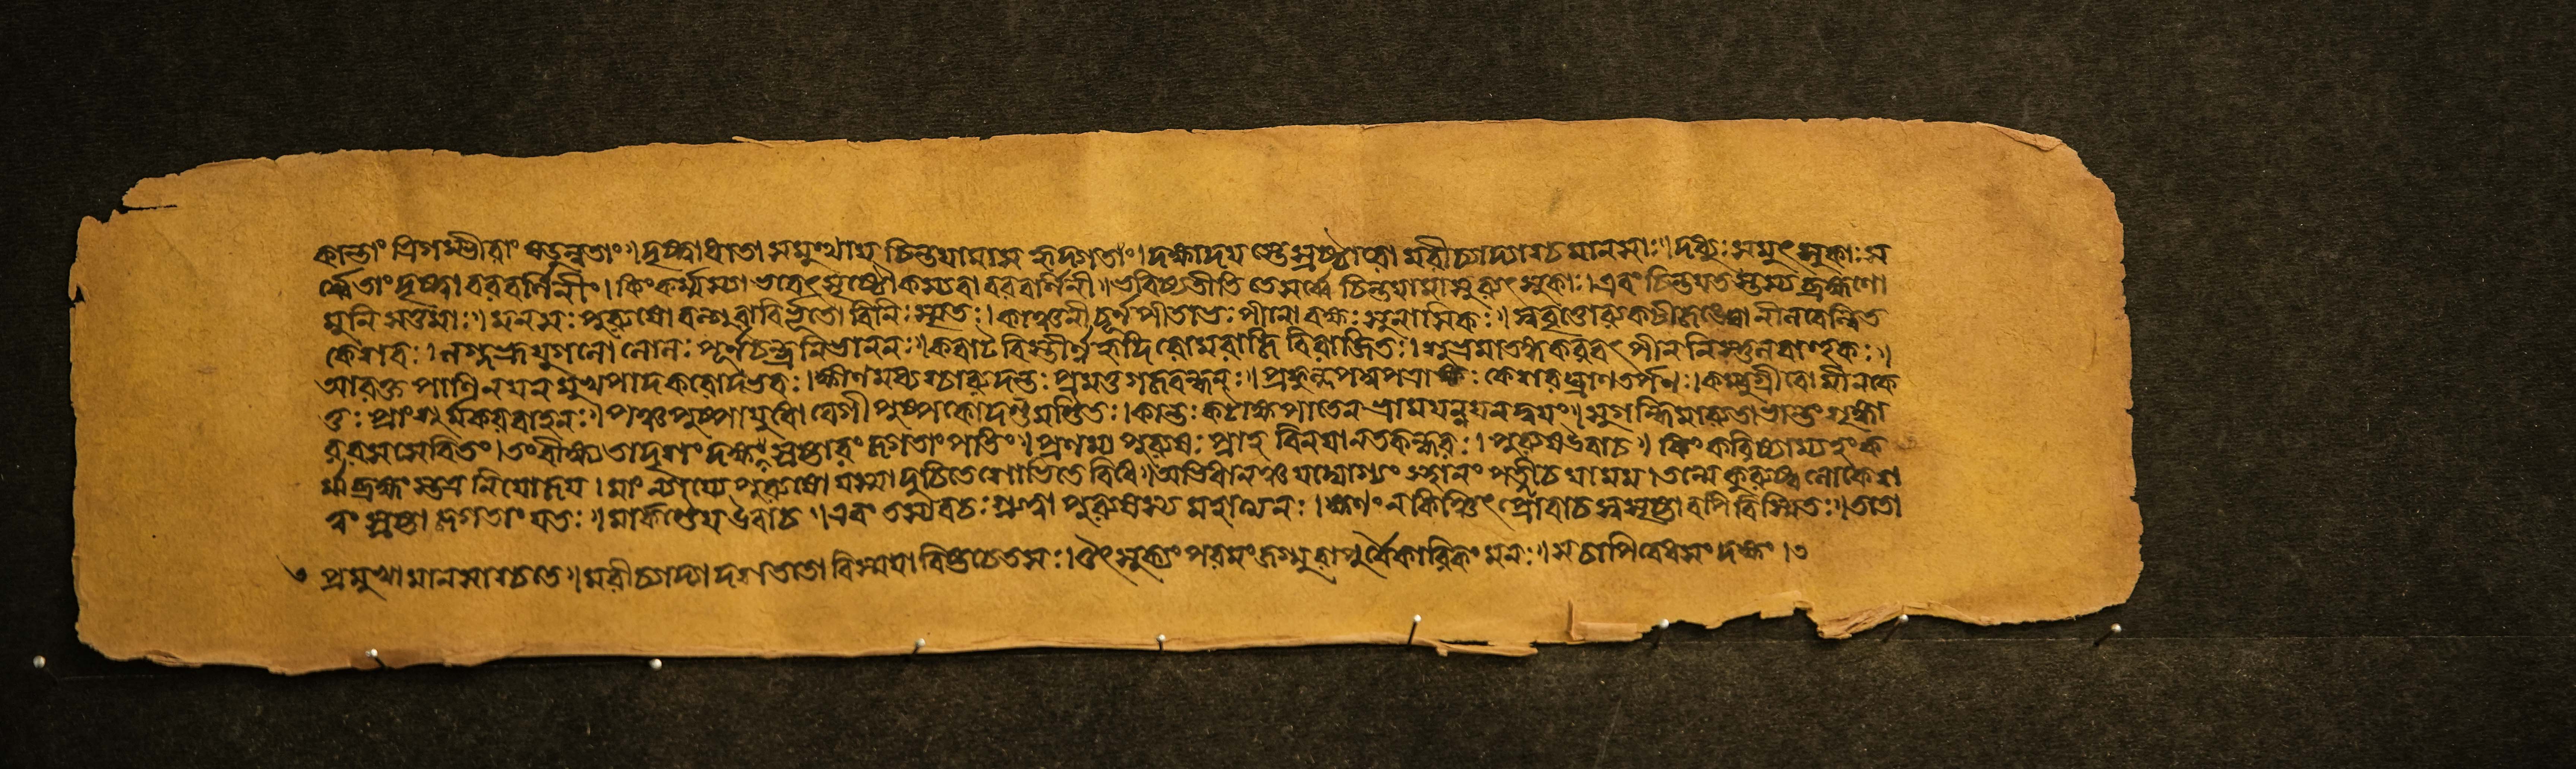 কান্তাং ত্রিগম্ভীরাং ষড়ুন্নতাং॥ দৃষ্ট্বা ধাতা সমুত্থায় চিন্তয়ামাস হৃদ্গতাং। দক্ষাদয়স্তে স্রষ্টারো মরীচ্যাদ্যাশ্চ মানসাঃ॥ দধ্যুঃ সমুৎসুকাঃ স
র্ব্বে তাং দৃষ্ট্বা বরবর্ণিনীং। কিং কর্ম্মাস্যা ভবেৎ সৃষ্টৌ কস্য বা বরবর্ণিনী॥ ভবিষ্যতীতি তে সর্ব্বে চিন্তয়ামাসুরুৎসুকাঃ। এবং চিন্তয়তস্তস্য ব্রহ্মণো
মুনিসত্তমাঃ॥ মনসঃ পুরুষো বল্গুরাবির্ভূতো বিনিঃসৃতঃ। কাঞ্চনীচূর্ণপীতাভঃ পীনো বক্ষঃ সুনাসিকঃ॥ সুবৃত্তোরুকটীজঙ্ঘো নীলবেল্লিত
কেশরঃ। লগ্নভ্রূযুগলো লোলঃ পূর্ণচন্দ্রনিভাননঃ॥ কবাটবিস্তীর্ণহৃদি রোমরাজি বিরাজিতঃ। শুভ্রমাতঙ্গকরবৎ পীননিস্তুলবাহুকঃ॥
আরক্তপাণিনয়নমুখপাদকরোদ্ভবঃ। ক্ষীণমধ্যশ্চারুদন্তঃ প্রমত্তগজবন্ধনঃ॥ প্রফুল্লপদ্মপত্রাক্ষঃ কেশরঘ্রাণতর্পণঃ। কম্বুগ্রীবো মীনকে
তুঃ প্রাংশুর্মকরবাহনঃ॥ পঞ্চপুষ্পায়ুধো বেগী পুষ্পকোদণ্ডমণ্ডিতঃ। কান্তঃ কটাক্ষপাতেন ভ্রাময়ন্নয়নদ্বয়ং॥ সুগন্ধিমারুতাভ্রান্তং শৃঙ্গা
ররসসেবিতং। তং বীক্ষ্য তাদৃশং দক্ষঃ স্রষ্টারং জগতাং পতিং॥ প্রণম্য পুরুষঃ প্রাহ বিনয়ানতকন্ধরঃ। পুরুষ উবাচ॥ কিং করিষ্যাম্যহং ক
র্ম্ম ব্রহ্মংস্তত্র নিযোজয়। মাং ন্যায্যে পুরুষো যস্মাদুচিতে শোভিতে বিধে॥ অভিধানঞ্চ যদ্যোগ্যং স্থানং পত্নী চ যা মম। তন্মে কুরুষ্ব লোকেশ
ত্বং স্রষ্টা জগতাং যতঃ॥ মার্কণ্ডেয় উবাচ॥ এবং তস্য বচঃ শ্রুত্বা পুরুষস্য মহাত্মনঃ। ক্ষণং ন কিঞ্চিৎ প্রোবাচ স্বসৃষ্টাবপি বিস্মিতঃ॥ ততো
প্রমুখা মানসাশ্চতে॥ মরীচ্যাদ্যা দশ ততো বিস্ময়াবিষ্টচেতসঃ। ঔৎসুক্যং পরমং জগ্মু মনঃ॥ স চাপি বেধসং দক্ষং।